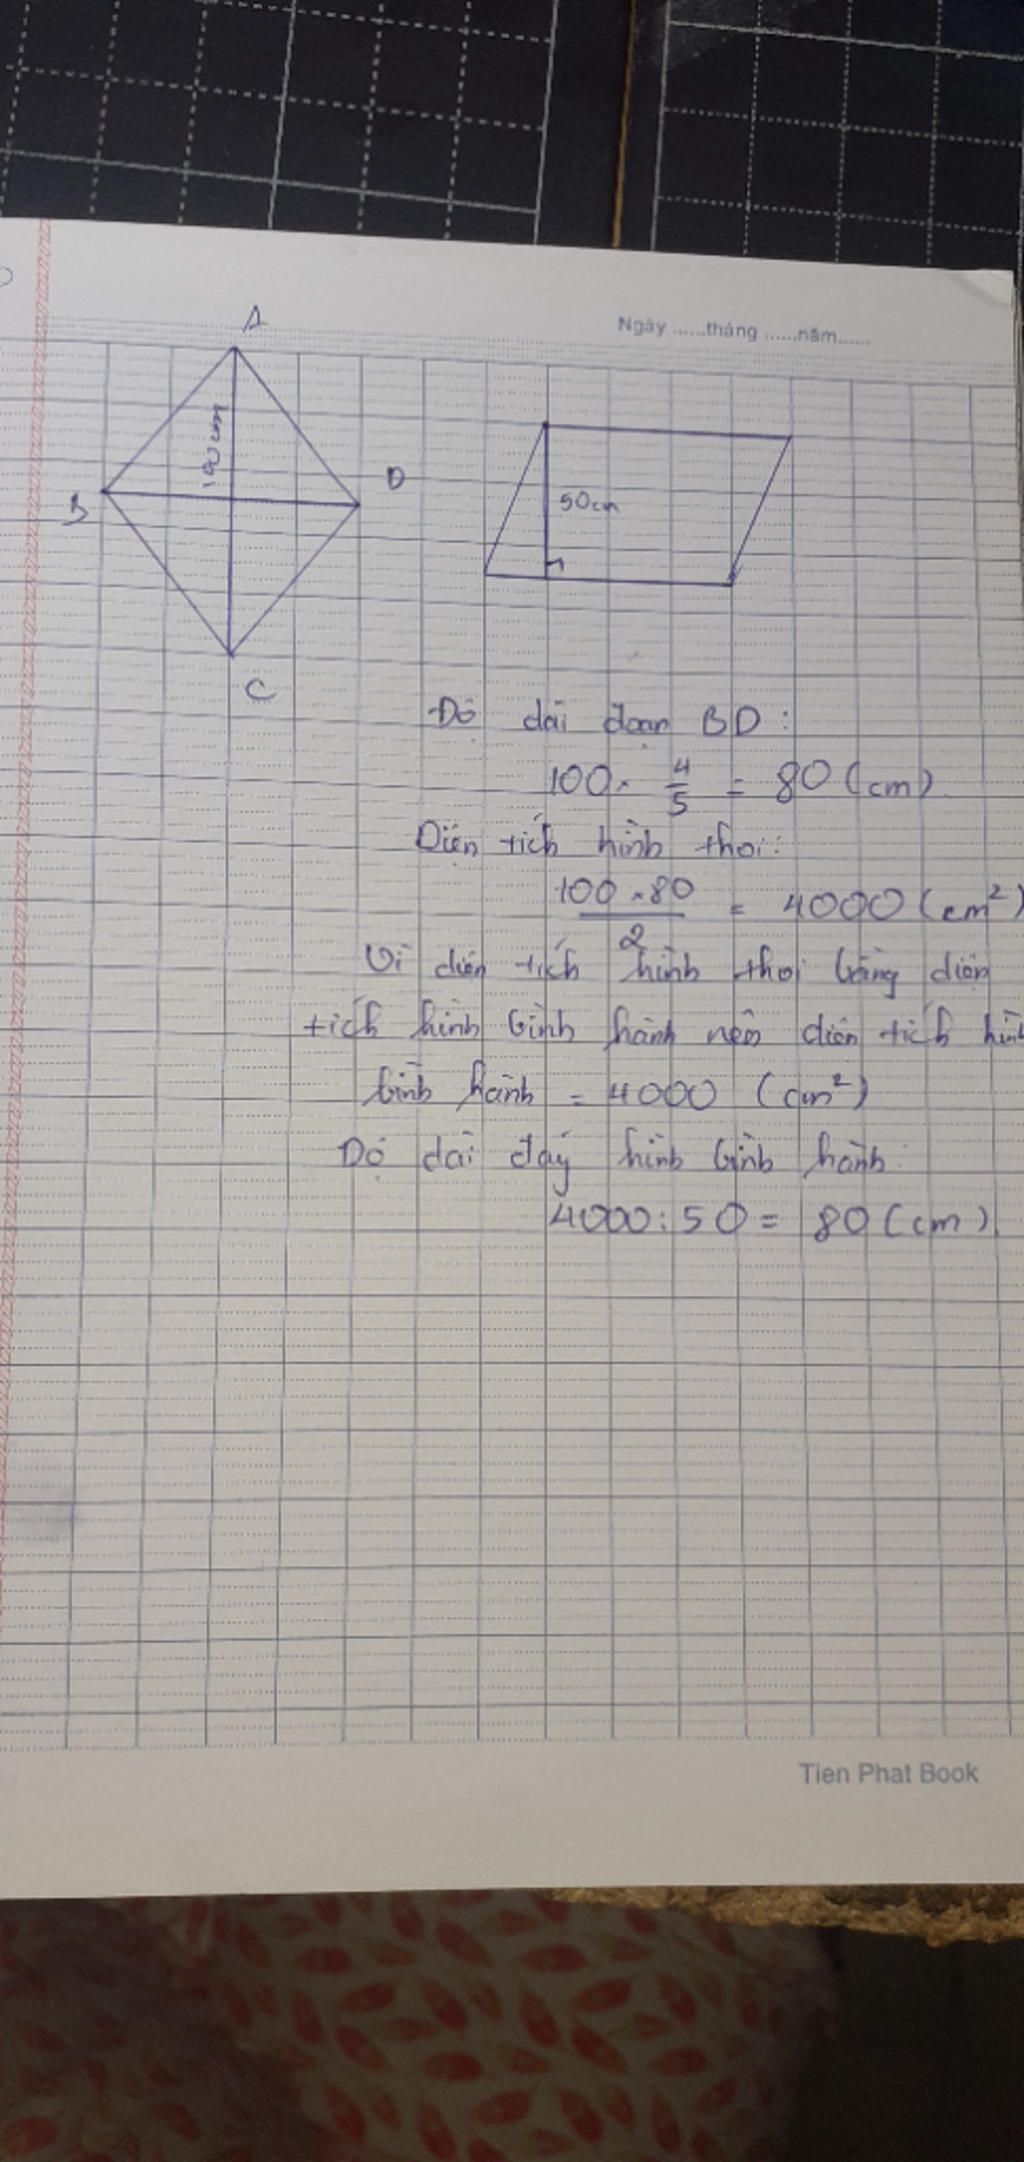 Ngày ......tháng ......năm......
A
100cm
B
D
50cm
C
Độ dài đoạn BD:
100 × 4/5 = 80 (cm)
Diện tích hình thoi:
100 × 80 / 2 = 4000 (cm²)
Vì diện tích hình thoi bằng diện
tích hình bình hành nên diện tích hình
bình hành = 4000 (cm²)
Độ dài đáy hình bình hành
4000 : 50 = 80 (cm)
Tien Phat Book